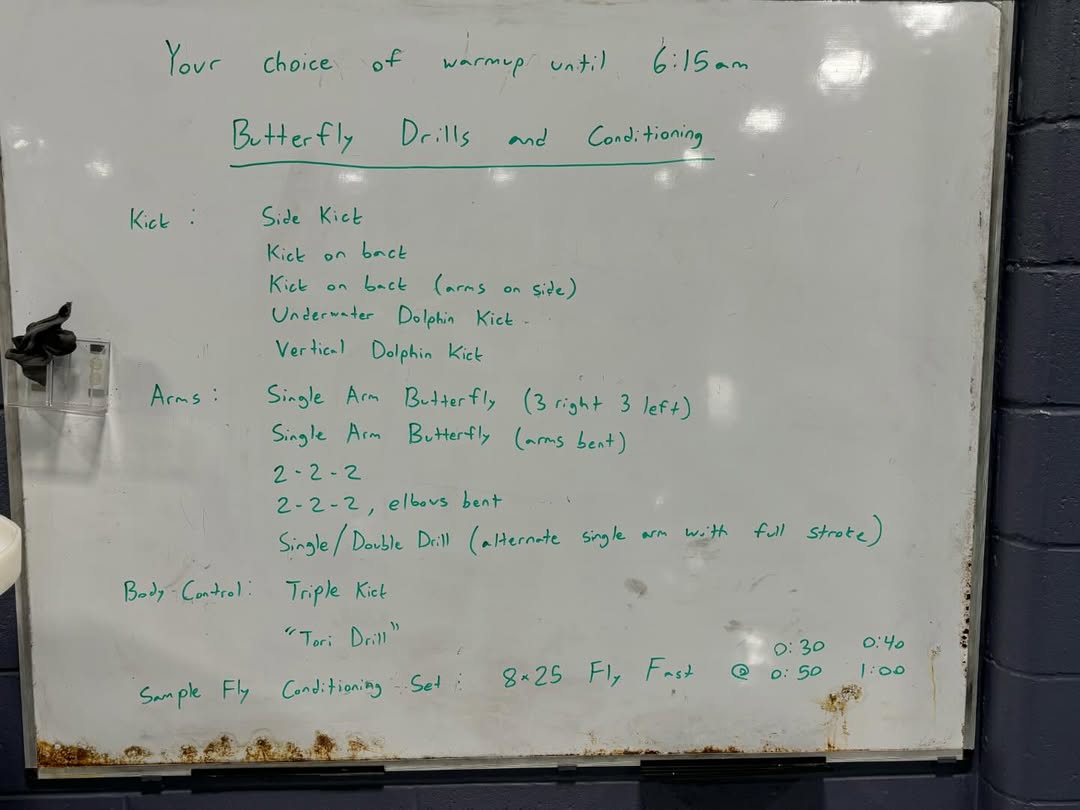 Your choice of warmup until 6:15am
Butterfly Drills and Conditioning
Kick: Side Kick
Kick on back
Kick on back (arms on side)
Underwater Dolphin Kick
Vertical Dolphin Kick
Arms: Single Arm Butterfly (3 right 3 left)
Single Arm Butterfly (arms bent)
2-2-2
2-2-2, elbows bent
Single/Double Drill (alternate single arm with full stroke)
Body Control: Triple Kick
"Tori Drill"
0:30 0:40
Sample Fly Conditioning Set: 8x25 Fly Fast @ 0:50 1:00